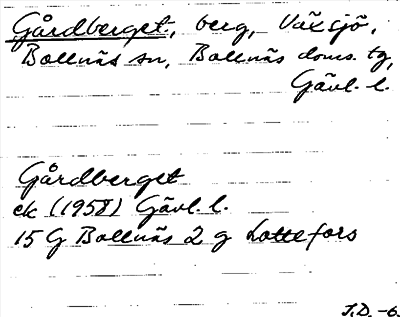 Gårdberget, berg, Växsjö,
Bollnäs sn, Bollnäs doms. tg,
Gävl. l.
Gårdberget
ek (1958) Gävl. l.
15 G Bollnäs 2 g Lottefors
J.D. -6